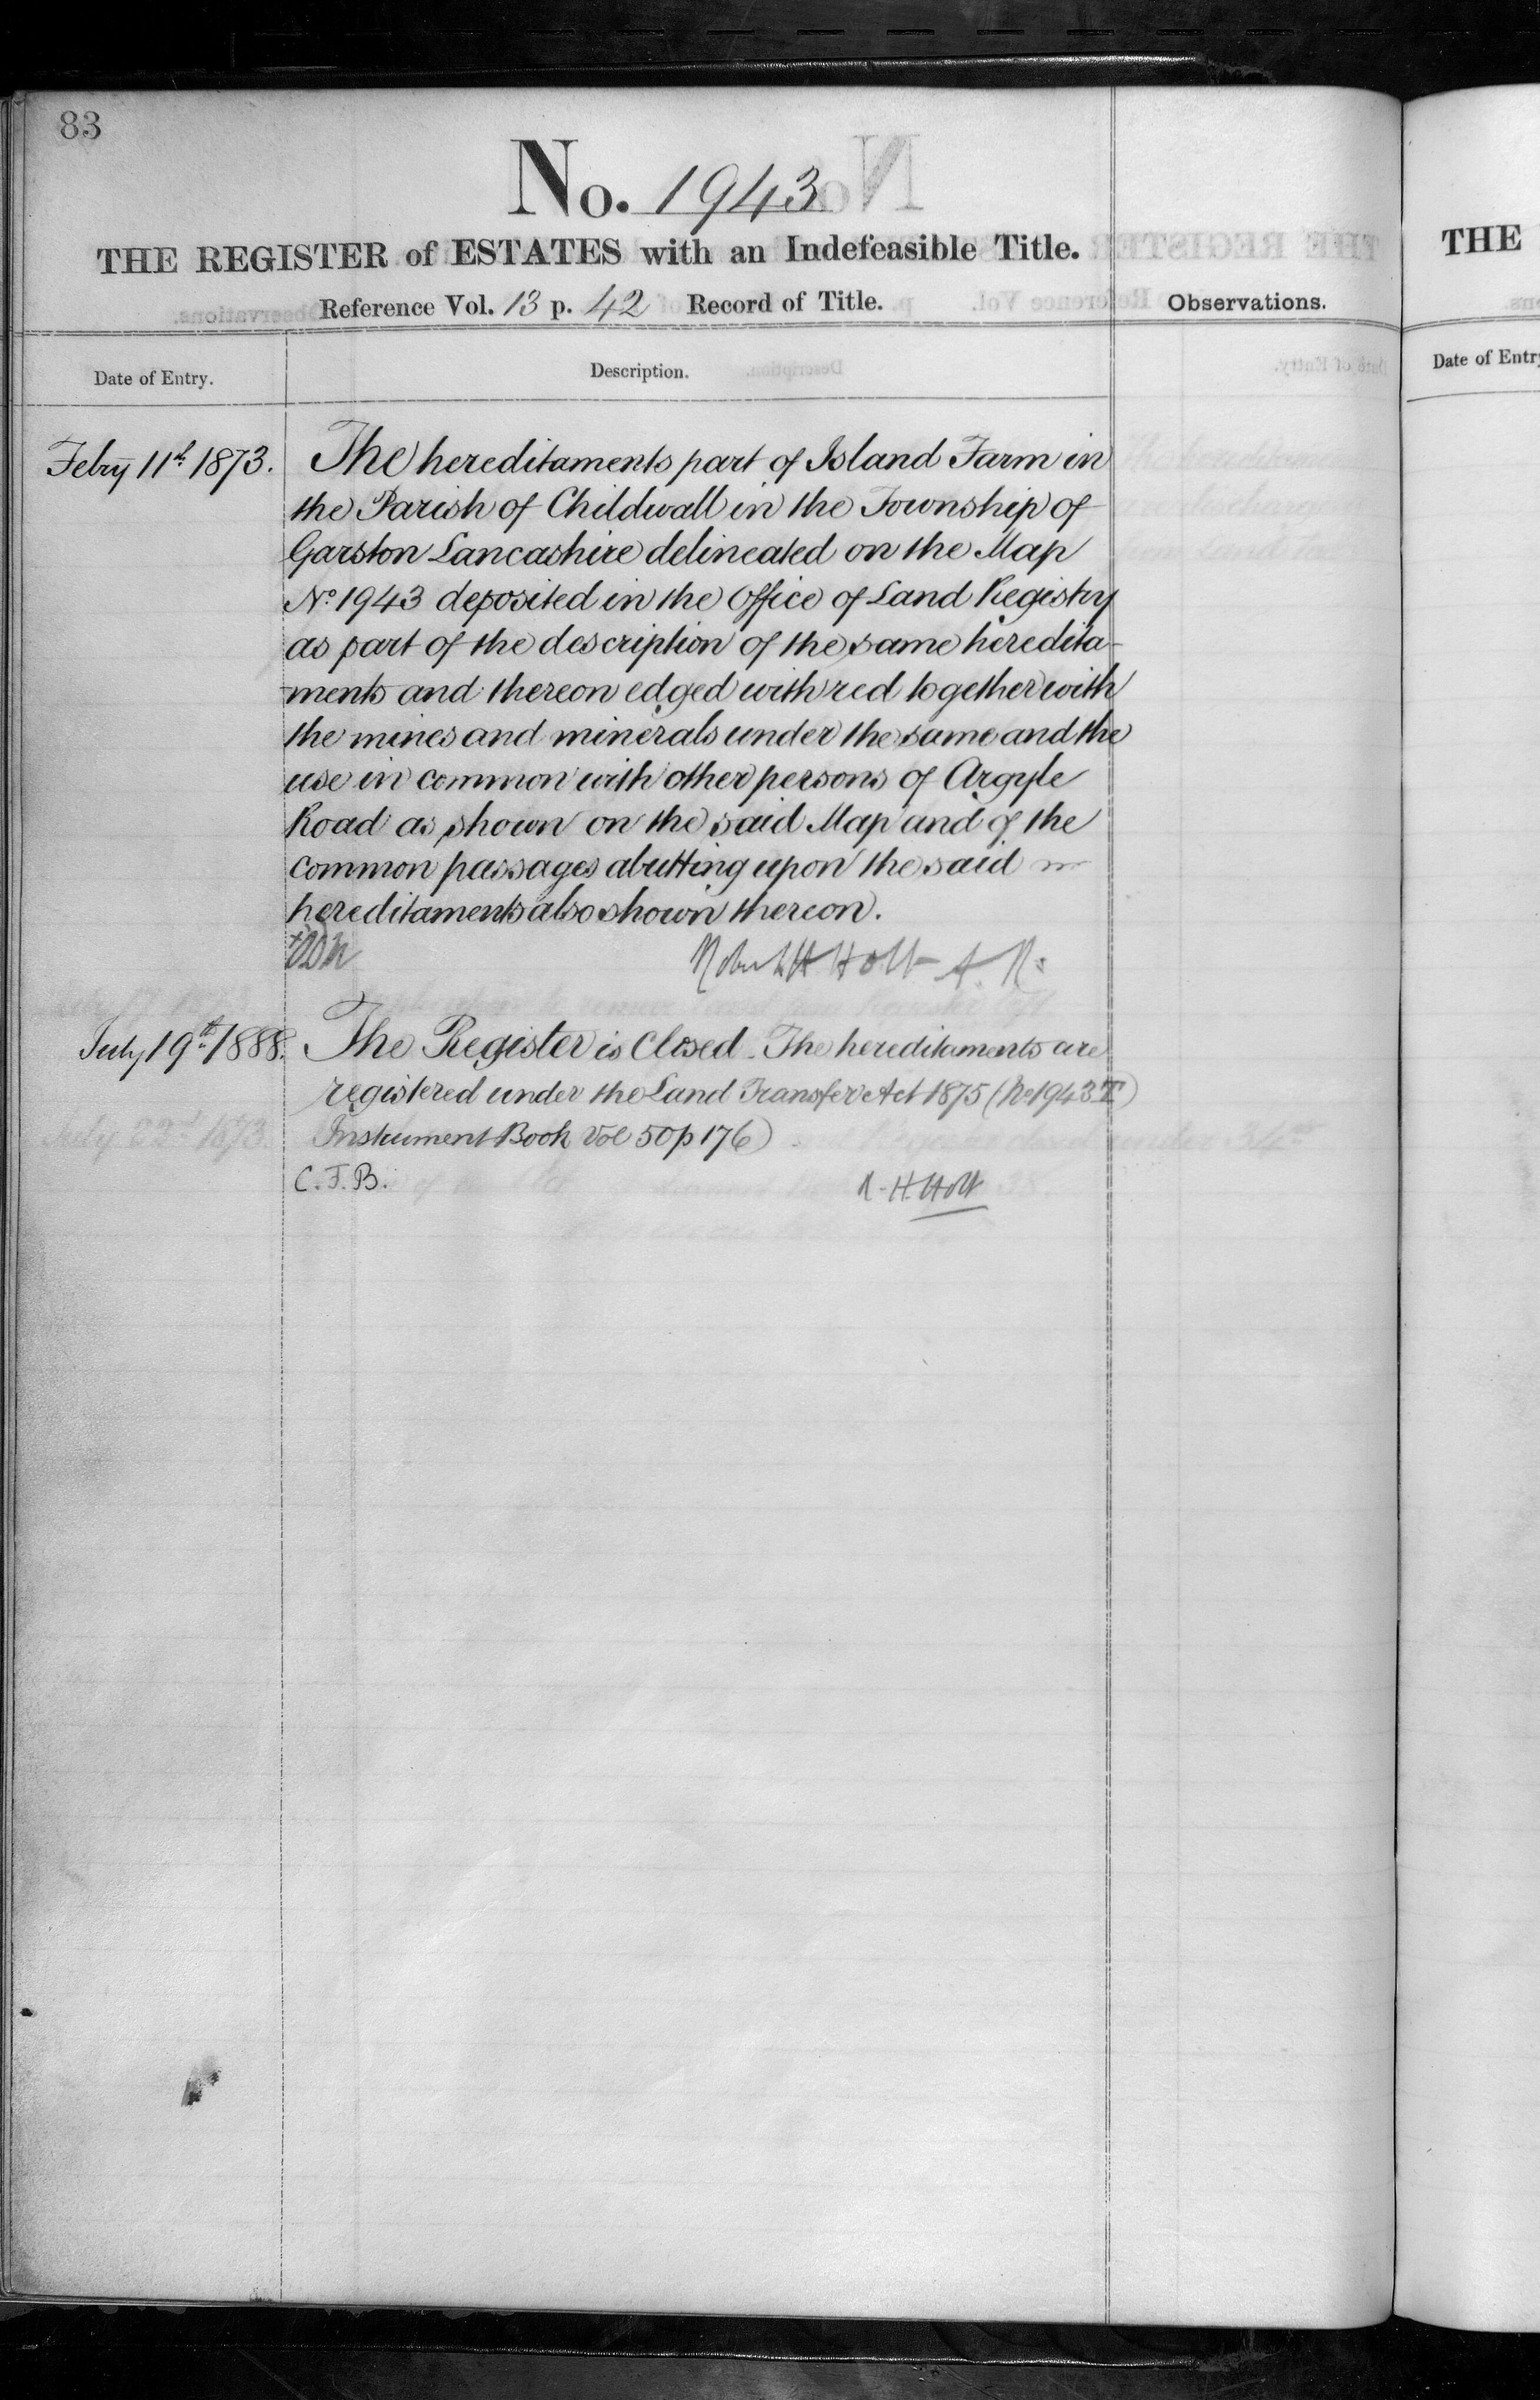 83
No. 1943
THE REGISTER of ESTATES with an Indefeasible Title.
Reference Vol. 13 p. 42 Record of Title.
Observations.
Date of Entry.
Description.
Febry 11th 1873.
The hereditaments part of Island Farm in
the Parish of Childwall in the Township of
Garston Lancashire delineated on the Map
No. 1943 deposited in the Office of Land Registry
as part of the description of the same heredita-
-ments and thereon edged with red together with
the mines and minerals under the same and the
use in common with other persons of Argyle
Road as shown on the said Map and of the
common passages abutting upon the said
hereditaments also shown thereon.
Robert H Holt A.R.
July 19th 1888.
The Register is Closed. The hereditaments are
registered under the Land Transfer Act 1875 (No 1943 T)
Instrument Book Vol 50 p 176)
C.F.B.
R.H. Holt
THE
Date of Entry